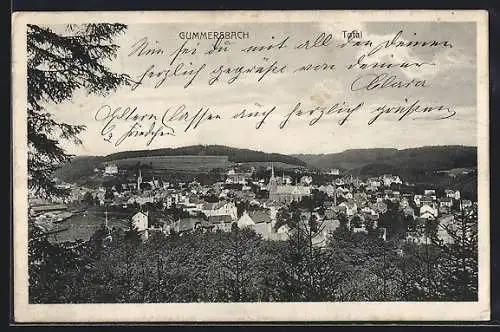 GUMMERSBACH Total
Nun sei du mit all den Deinen
herzlich gegrüßt von deiner
Clara
Eltern lassen auch herzlich grüßen